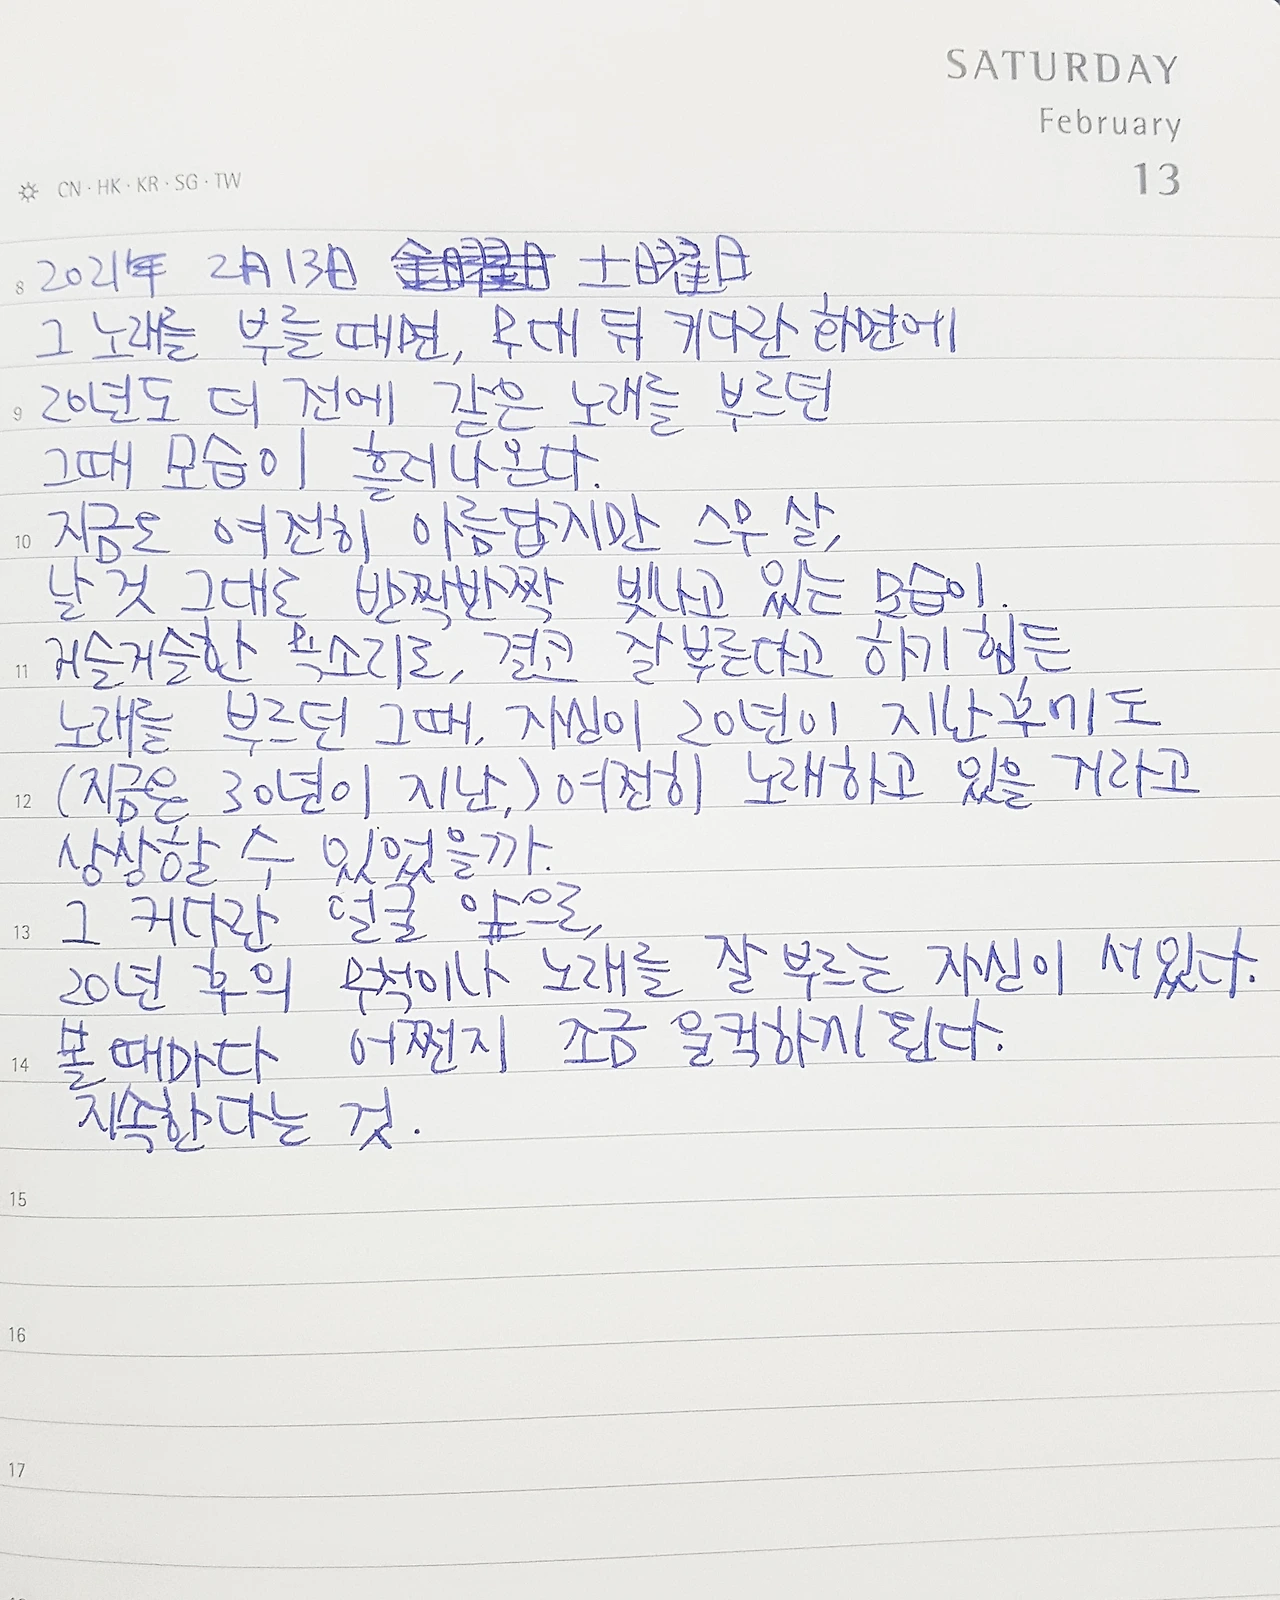 SATURDAY
February
13
CN · HK · KR · SG · TW
8 2021年 2月13日 金曜日 土曜日
그 노래를 부를 때면, 무대 뒤 커다란 화면에
9 20년도 더 전에 같은 노래를 부르던
그때 모습이 흘러나온다.
10 지금도 여전히 아름답지만 스무 살,
날 것 그대로 반짝반짝 빛나고 있는 모습이.
11 거슬거슬한 목소리로, 결코 잘 부른다고 하기 힘든
노래를 부르던 그때, 자신이 20년이 지난 후에도
12 (지금은 30년이 지난,) 여전히 노래하고 있을 거라고
상상할 수 있었을까.
13 그 커다란 얼굴 앞으로,
20년 후의 무척이나 노래를 잘 부르는 자신이 서있다.
14 볼 때마다 어쩐지 조금 울컥하게 된다.
지속한다는 것.
15
16
17